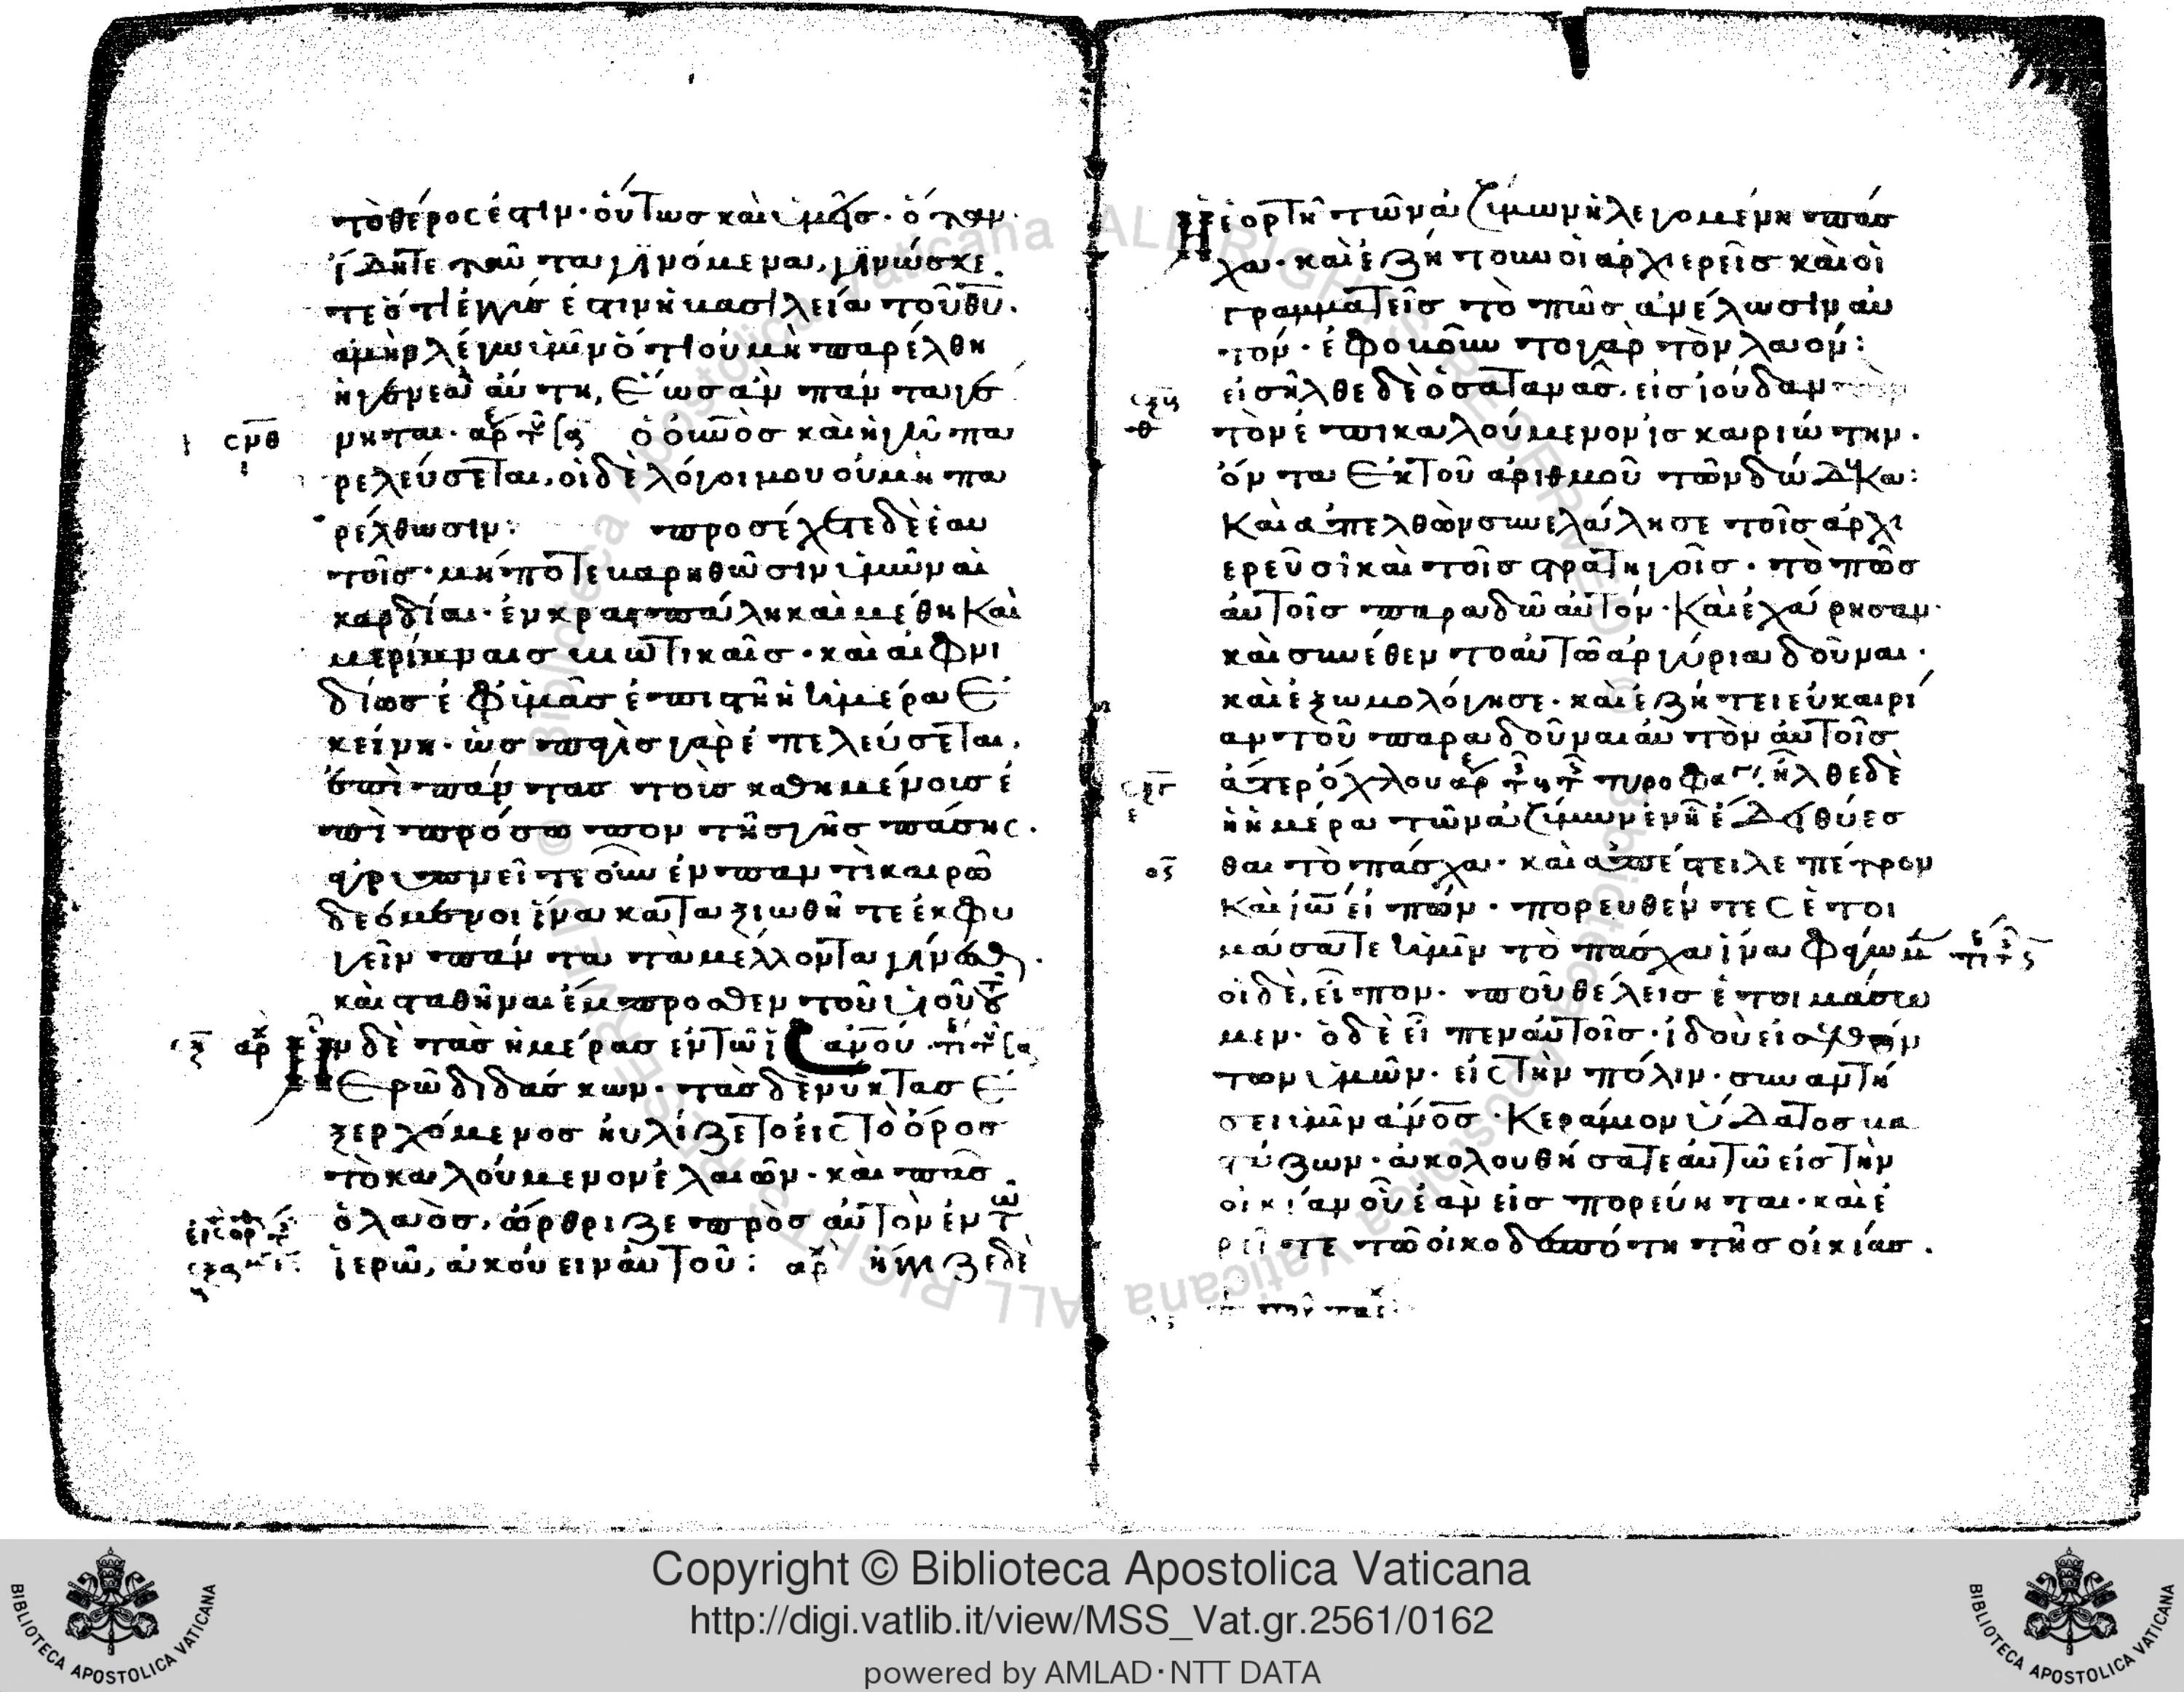 τὸ θέρος ἐστιν· οὕτως καὶ ὑμεῖς· ὅταν
ἴδητε ταῦτα γινόμενα, γινώσκε
τε ὅτι ἐγγύς ἐστιν ἡ βασιλεία τοῦ θυ·
ἀμὴν λέγω ὑμῖν ὅτι οὐ μὴ παρέλθη
ἡ γενεὰ αὕτη, ἕως ἂν πάντα γέ
σμθ νηται· ὁ οὐνὸσ καὶ ἡ γῆ πα
ρελεύσεται, οἱ δὲ λόγοι μου οὐ μὴ πα
ρέλθωσιν: προσέχετε δὲ ἑαυ
τοῖς· μήποτε βαρηθῶσιν ὑμῶν αἱ
καρδίαι· ἐν κραιπάλη καὶ μέθη καὶ
μερίμναις βιωτικαῖς· καὶ αἰφνι
δίως ἐφ' ὑμᾶς ἐπιστῆ ἡ ἡμέρα ἐ
κείνη· ὡς παγὶς γὰρ ἐπελεύσεται,
ἐπὶ πάντας τοὺς καθημένους ἐ
πὶ πρόσωπον τῆς γῆς πάσης·
ἀγρυπνεῖτε οὖν ἐν παντὶ καιρῶ
δεόμενοι ἵνα καταξιωθῆτε ἐκφυ
γεῖν πάντα τὰ μέλλοντα γίνεσθαι·
καὶ σταθῆναι ἔμπροσθεν τοῦ υἱοῦ τοῦ
Ην δὲ τὰς ἡμέρας ἐν τῶ ἱ ανου
ερῶ διδάσκων· τὰς δὲ νύκτας ἐ
ξερχόμενος ηὐλίζετο εἰς τὸ ὄρος
τὸ καλούμενον ἐλαιῶν· καὶ πᾶς
ὁ λαὸς, ὤρθριζε πρὸς αὐτὸν ἐν τῶ
ἱερῶ, ἀκούειν αὐτοῦ: ἤγγιζε δὲ
Η ἑορτὴ τῶν ἀζύμων ἡ λεγομένη πάσ
χα· καὶ ἐζήτουν οἱ ἀρχιερεῖς καὶ οἱ
γραμματεῖς τὸ πῶς ἀνέλωσιν αὐ
τόν· ἐφοβοῦντο γὰρ τὸν λαόν:
εἰσῆλθε δὲ ὁ σατανᾶς, εἰς ἰούδαν
τὸν ἐπικαλούμενον ἰσκαριώτην·
ὄντα ἐκ τοῦ ἀριθμοῦ τῶν δώδεκα:
Καὶ ἀπελθὼν συνελάλησε τοῖς ἀρχι
ερεῦσι καὶ τοῖς στρατηγοῖς· τὸ πῶς
αὐτοῖς παραδῶ αὐτόν· καὶ ἐχάρησαν·
καὶ συνέθεντο αὐτῶ ἀργύρια δοῦναι·
καὶ ἐξωμολόγησε· καὶ ἐζήτει εὐκαιρί
αν τοῦ παραδοῦναι αὐτὸν αὐτοῖς
ἄτερ ὄχλου ἦλθε δὲ
ἡ ἡμέρα τῶν ἀζύμων ἐν ἧ ἔδει θύεσ
θαι τὸ πάσχα· καὶ ἀπέστειλε πέτρον
καὶ ἰω εἰπών· πορευθέντες ἑτοι
μάσατε ἡμῖν τὸ πάσχα ἵνα φάγωμεν
οἱ δὲ, εἶπον· ποῦ θέλεις ἑτοιμάσω
μεν· ὁ δὲ εἶπεν αὐτοῖς· ἰδοὺ εἰσελθόν
των ὑμῶν· εἰς τὴν πόλιν· συναντή
σει ὑμῖν ἀνος· κεράμιον ὕδατος βα
στάζων· ἀκολουθήσατε αὐτῶ εἰς τὴν
οἰκίαν οὗ ἐὰν εἰσπορεύηται· καὶ ἐ
ρεῖτε τῶ οἰκοδεσπότη τῆς οἰκίας·